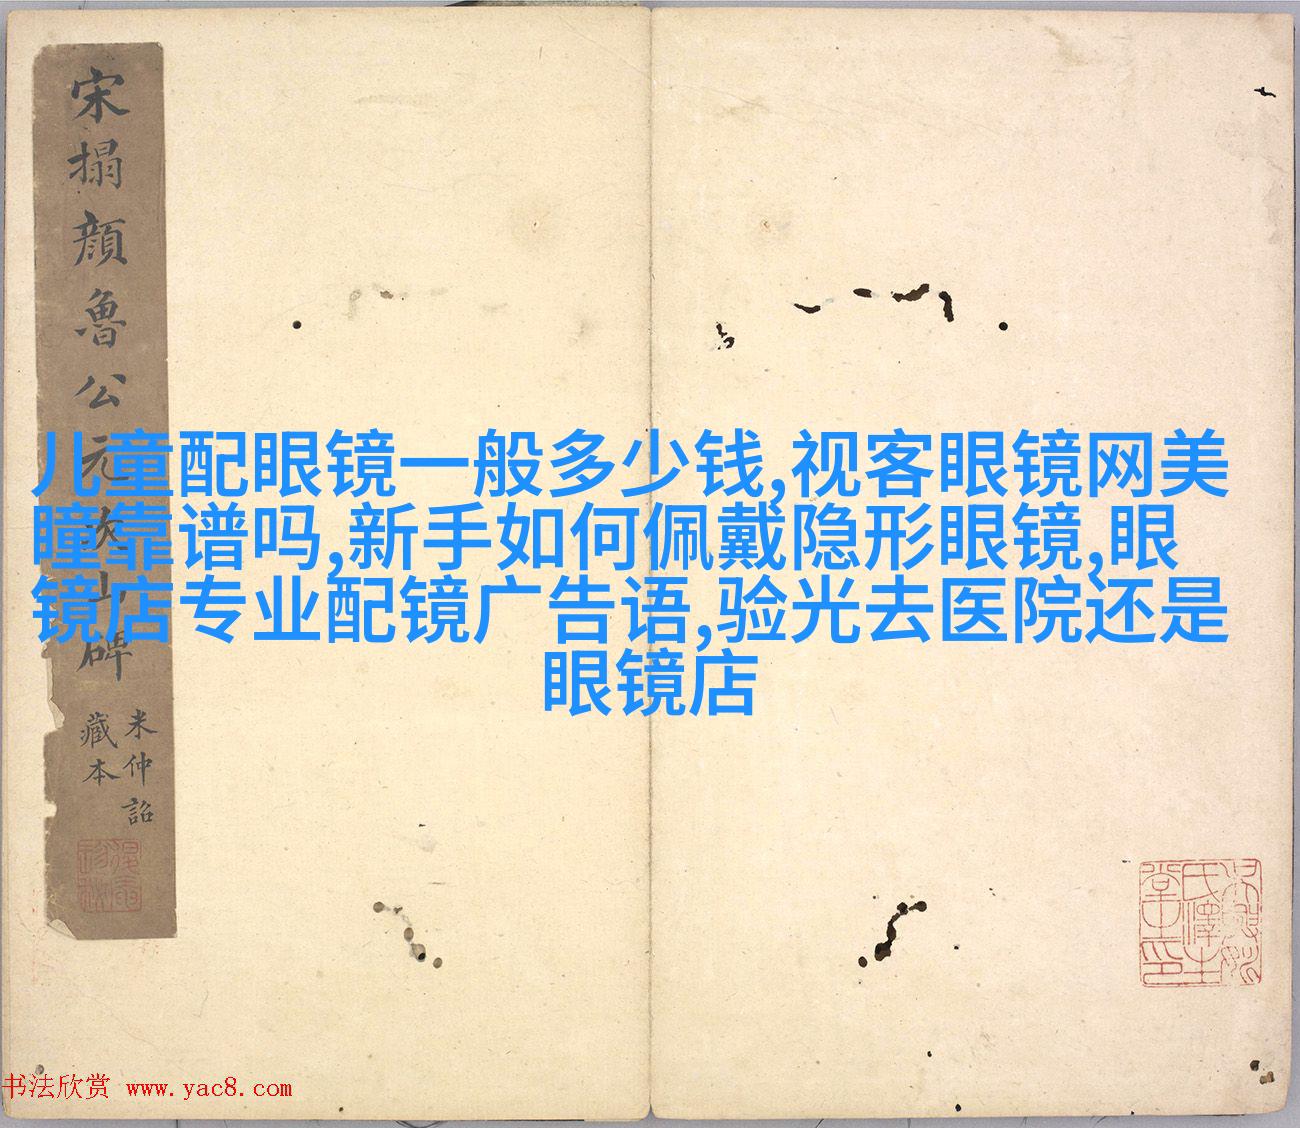 宋搨顔魯公元次山碑
米仲詔
藏本
儿童配眼镜一般多少钱,视客眼镜网美
瞳靠谱吗,新手如何佩戴隐形眼镜,眼
镜店专业配镜广告语,验光去医院还是
眼镜店
书法欣赏 www.yac8.com